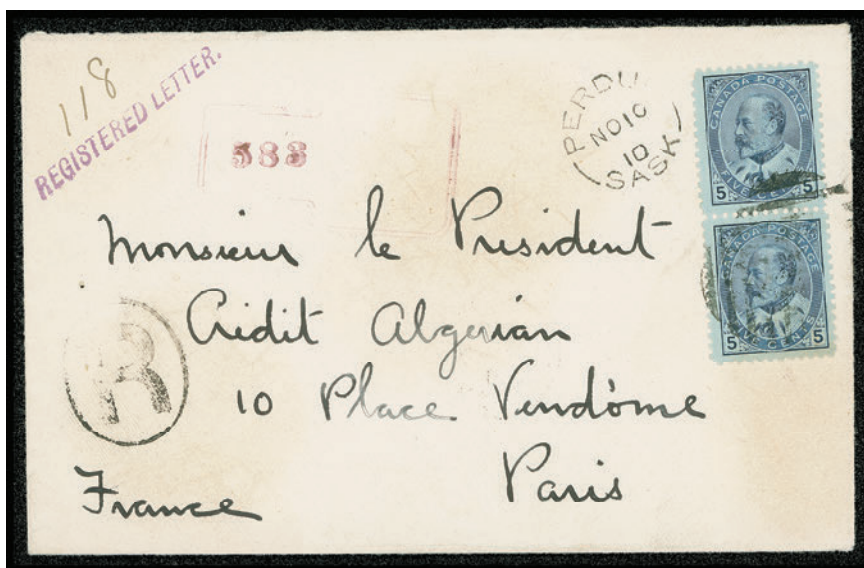 118
REGISTERED LETTER.
583
PERDU
NO 10
10
SASK
CANADA POSTAGE
5 5
CANADA POSTAGE
FIVE CENTS
5 5
Monsieur le President
Crédit Algerian
10 Place Vendôme
Paris
France
R